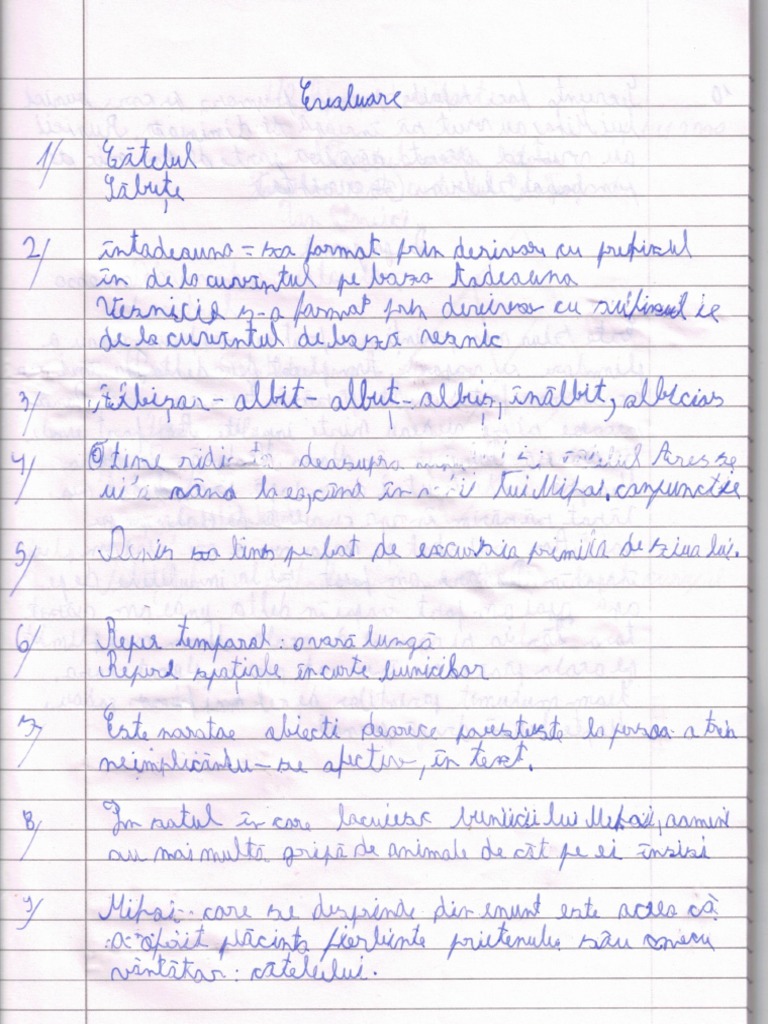 Evaluare
1/ Cățelul
Lăbuțe
2/ întadeauna = sa format prin derivare cu prefixul
în de la cuvantul pe baza tadeauna
Veznicie s-a format prin derivare cu sufixul ie
de la cuvântul de bază veznic
3/ Albișar - albit - albuț - albuș, înălbit, albicios
4/ O time ridic deasupra
mâna la ex, când în lui Mihai. conjuncție
5/ Denis sa lins pe bot de excursia primită de ziua lui.
6/ Reper temporal: o vară lungă
Reperul spațiale în curte bunicilor
Este naratae obiecti dearece povesteste la persoa a treia
neimplicându-se afectiv, în text.
8/ Im satul în care lacuiesc bunicii lui Mihai, oameni
au mai multă gripă de animale de cât pe ei înzizi
Mihai care se desprinde din enunt este aceea că
a oferit plăcinta fierbinte prietenului său
vântător: cățelului.